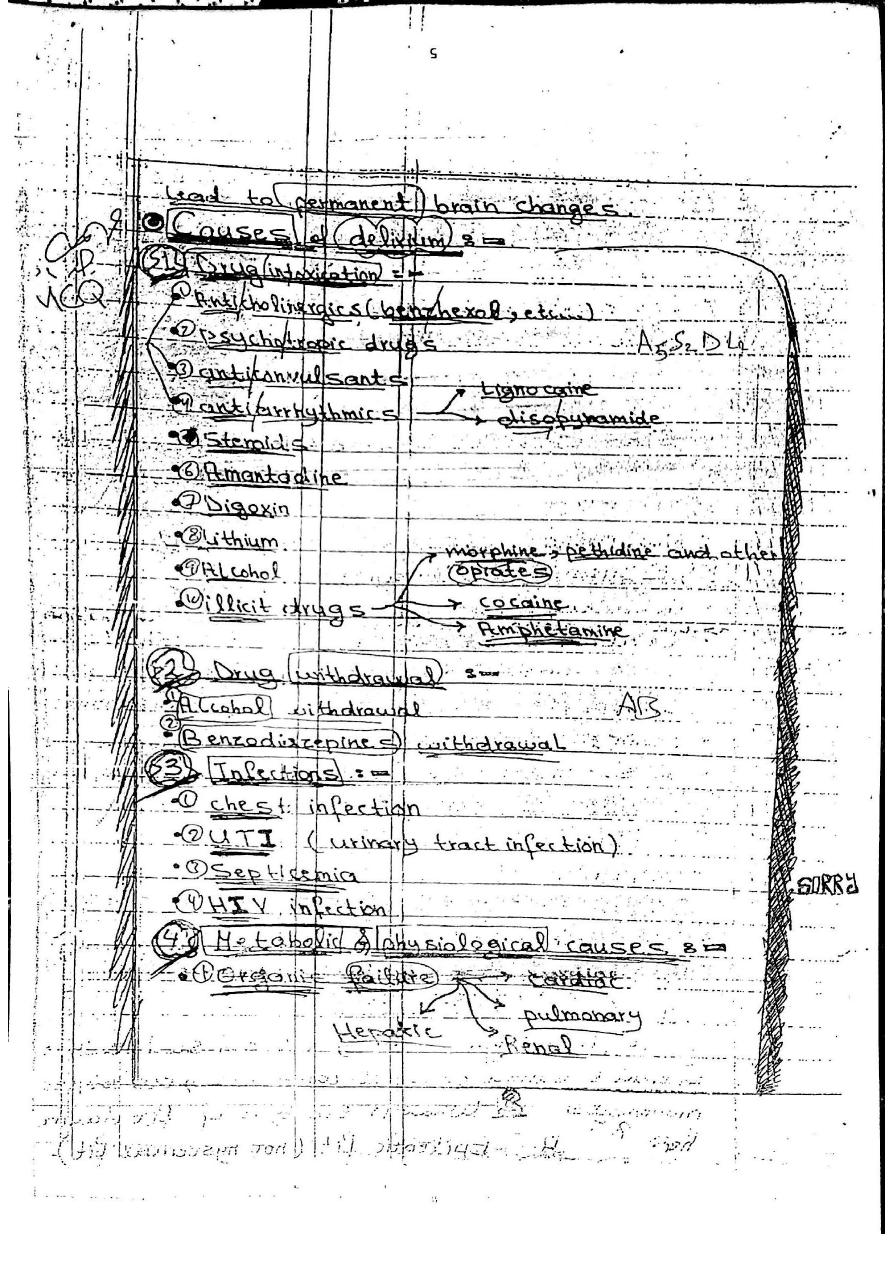 5
Lead to permanent brain changes.
Causes of delirium :-
<1> Drug intoxication :-
MCQ
① Anticholinergics (benzhexol, etc...)
② psychotropic drugs
A5S2DL
③ anticonvulsants
④ antiarrhythmics → Lignocaine
→ disopyramide
⑤ Steroids
⑥ Amantadine
⑦ Digoxin
⑧ Lithium
⑨ Alcohol
⑩ illicit drugs → morphine, pethidine and other opiates
→ cocaine
→ Amphetamine
<2> Drug withdrawal :-
① Alcohol withdrawal
AB
② Benzodiazepines withdrawal
<3> Infections :-
① chest infection
② UTI (urinary tract infection)
③ Septicemia
SORRY
④ HIV infection
<4> Metabolic & physiological causes :-
① Organic failure → cardiac
pulmonary
Hepatic
Renal